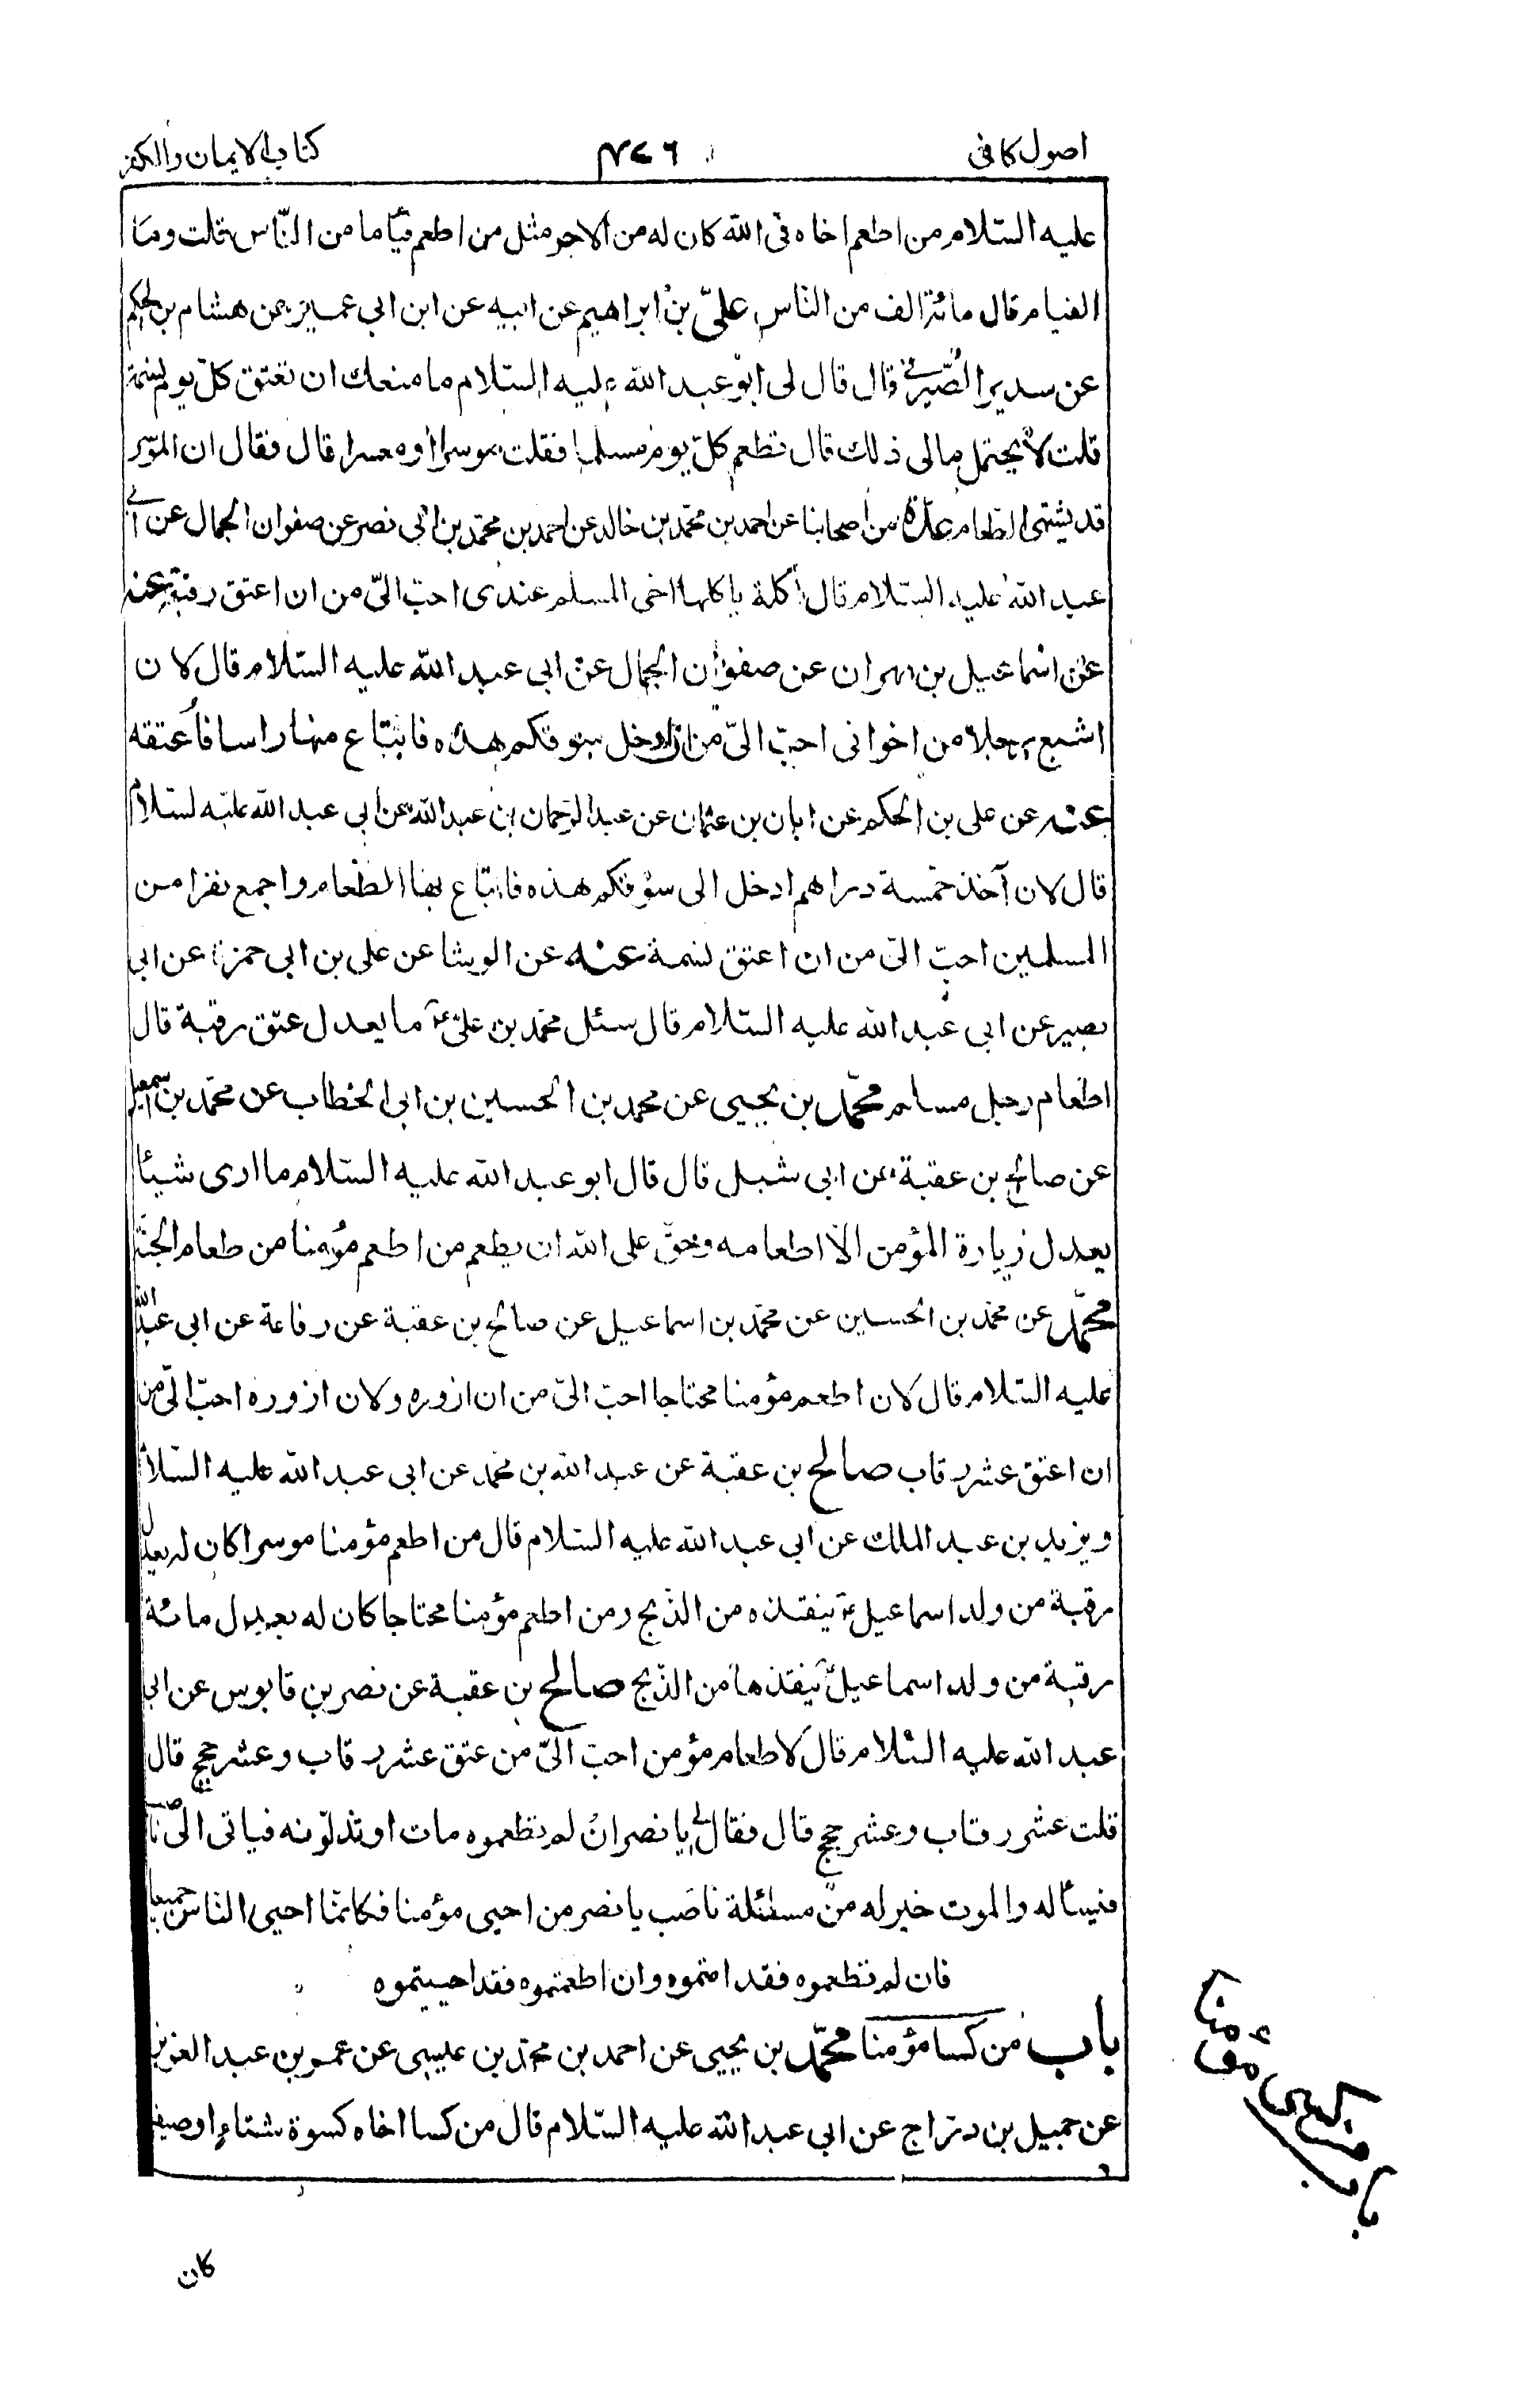 اصول كافى ٤٢٦ كتاب الايمان والكفر
عليه السّلام من اطعم اخاه فى اللّه كان له من الاجر مثل من اطعم فيّاما من النّاس قلت وما
الفيام قال مائة الف من الناس علىّ بن ابراهيم عن ابيه عن ابن ابى عمير عن هشام بن الحكم
عن سدير الصّيرفى قال قال لى ابو عبد اللّه عليه السّلام ما منعك ان تعتق كلّ يوم نسمة
قلت لا يحتمل مالى ذلك قال تطعم كلّ يوم مسلما فقلت موسرا او معسرا قال فقال ان الموسر
قد يشتهى الطعام عدّة من اصحابنا عن احمد بن محمّد بن خالد عن احمد بن محمّد بن ابى نصر عن صفوان الجمال عن ابى
عبد اللّه عليه السّلام قال اكلة ياكلها اخى المسلم عندى احبّ الىّ من ان اعتق رقبة عنه
عن اسماعيل بن مهران عن صفوان الجمال عن ابى عبد اللّه عليه السّلام قال لان
اشبع رجلا من اخوانى احبّ الىّ من ان ادخل سوقكم هذه فابتاع منها راسا فاعتقه
عنه عن على بن الحكم عن ابان بن عثمان عن عبد الرّحمان بن عبد اللّه عن ابى عبد اللّه عليه السّلام
قال لان آخذ خمسة دراهم ادخل الى سوقكم هذه فابتاع بها الطّعام واجمع نفرا من
المسلمين احبّ الىّ من ان اعتق نسمة عنه عن الوشا عن على بن ابى حمزة عن ابى
بصير عن ابى عبد اللّه عليه السّلام قال سئل محمّد بن علىّ ع ما يعدل عتق رقبة قال
اطعام رجل مسلم محمّد بن يحيى عن محمد بن الحسين بن ابى الخطاب عن محمّد بن اسمعيل
عن صالح بن عقبة عن ابى شبل قال قال ابو عبد اللّه عليه السّلام ما ارى شيئا
يعدل زيارة المؤمن الّا اطعامه وحقّ على اللّه ان يطعم من اطعم مؤمنا من طعام الجنّة
محمّد عن محمّد بن الحسين عن محمّد بن اسماعيل عن صالح بن عقبة عن رفاعة عن ابى عبد اللّه
عليه السّلام قال لان اطعم مؤمنا محتاجا احبّ الىّ من ان ازوره ولان ازوره احبّ الىّ من
ان اعتق عشر رقاب صالح بن عقبة عن عبد اللّه بن محمد عن ابى عبد اللّه عليه السّلام
ويزيد بن عبد الملك عن ابى عبد اللّه عليه السّلام قال من اطعم مؤمنا موسرا كان له يعدل
رقبة من ولد اسماعيل ع ينقذه من الذّبح ومن اطعم مؤمنا محتاجا كان له يعدل مائة
رقبة من ولد اسماعيل ينقذها من الذّبح صالح بن عقبة عن نصر بن قابوس عن ابى
عبد اللّه عليه السّلام قال لاطعام مؤمن احبّ الىّ من عتق عشر رقاب وعشر حجج قال
قلت عشر رقاب وعشر حجج قال فقال لى يا نصر ان لم تطعموه مات او تذلّونه فياتى الى ناصب
فيساله والموت خير له من مسئلة ناصب يا نصر من احيى مؤمنا فكانّما احيى النّاس جميعا
فان لم تطعموه فقد امتموه وان اطعمتموه فقد احييتموه
باب من كسا مؤمنا محمّد بن يحيى عن احمد بن محمّد بن عيسى عن عمر بن عبد العزيز
عن جميل بن درّاج عن ابى عبد اللّه عليه السّلام قال من كسا اخاه كسوة شتاء او صيف
كان
باب من كسى مؤمنا